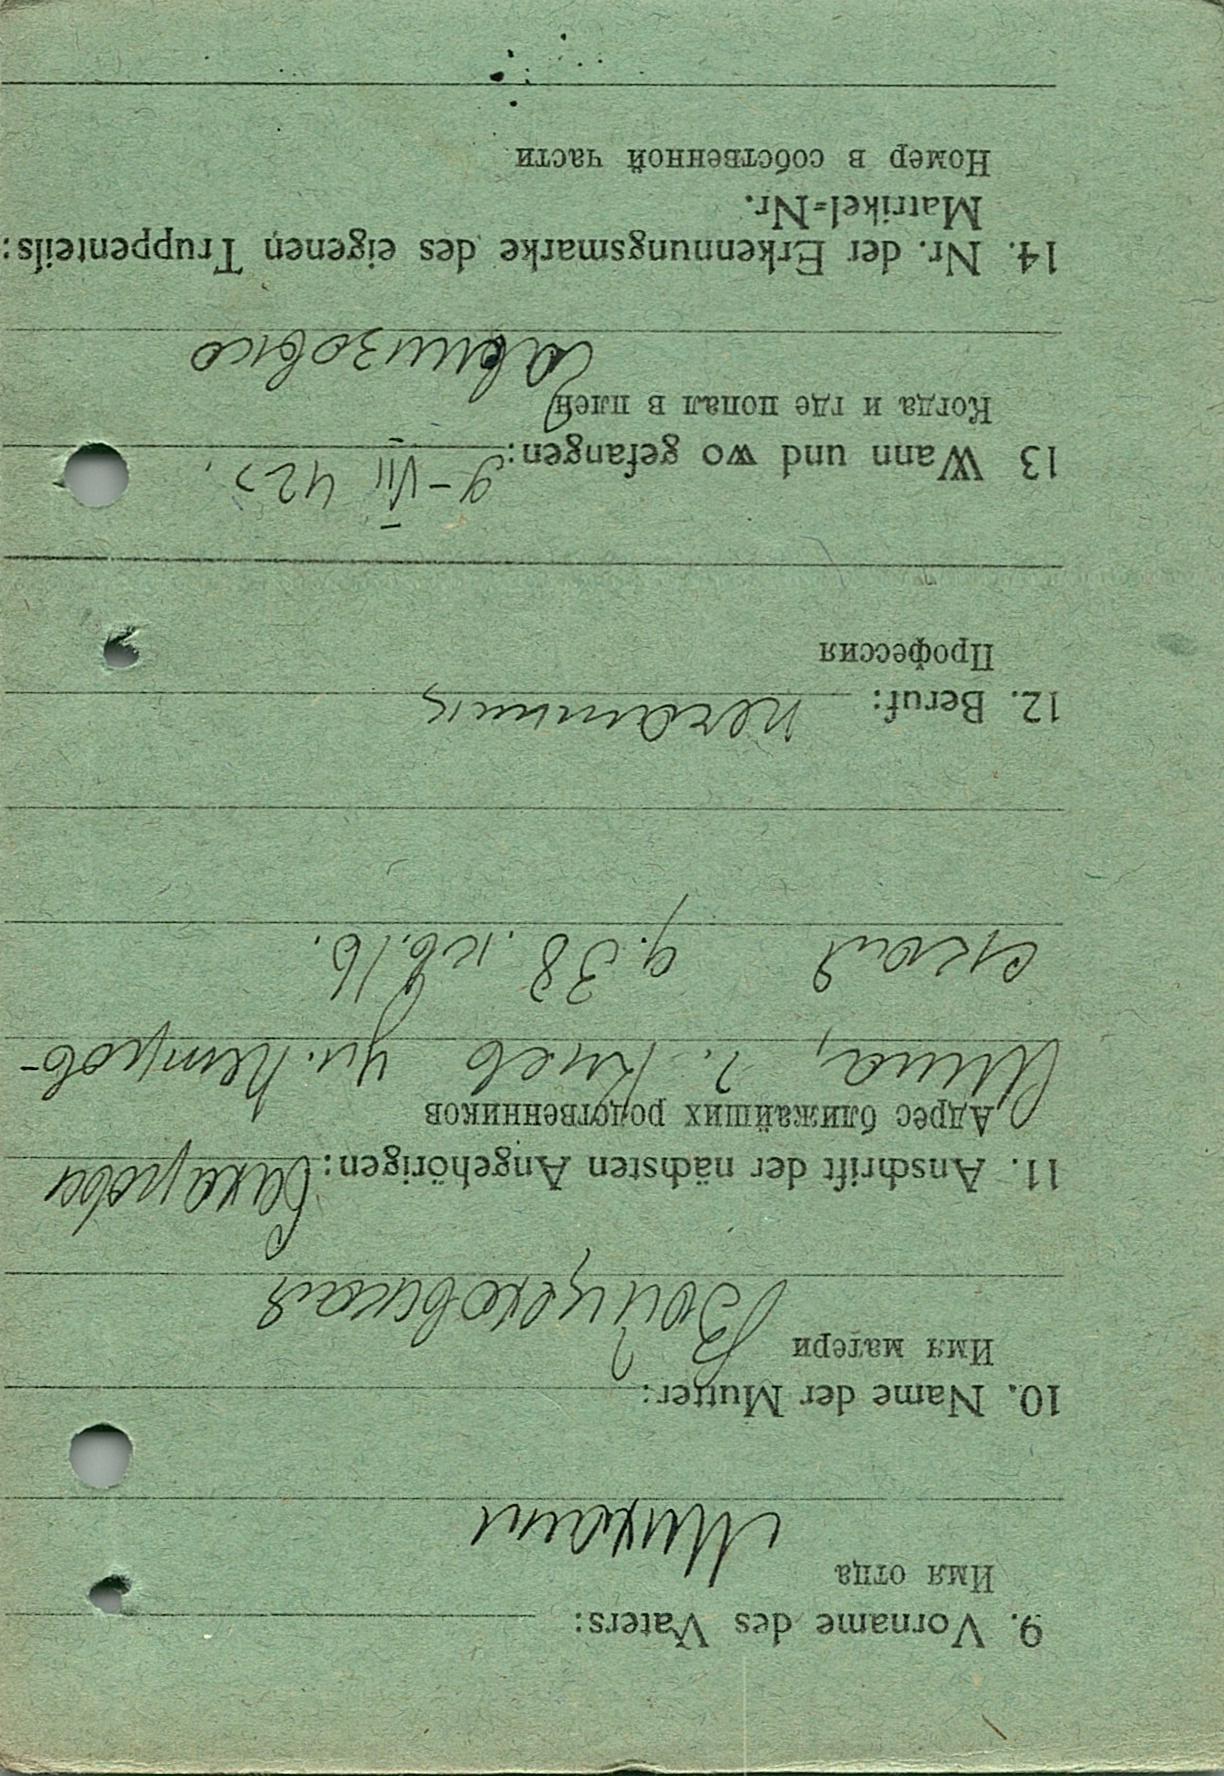 9. Vorname des Vaters:
Имя отца
Михаил
10. Name der Mutter:
Имя матери
Войцеховская
11. Anschrift der nächsten Angehörigen: Сахарова
Адрес ближайших родственников
г. Киев ул. Петров-
ская д. 38. кв. 16.
12. Beruf: печатник
Профессия
13 Wann und wo gefangen: 9-VII 42г.
Когда и где попал в плен
14. Nr. der Erkennungsmarke des eigenen Truppenteils:
Matrikel-Nr.
Номер в собственной части